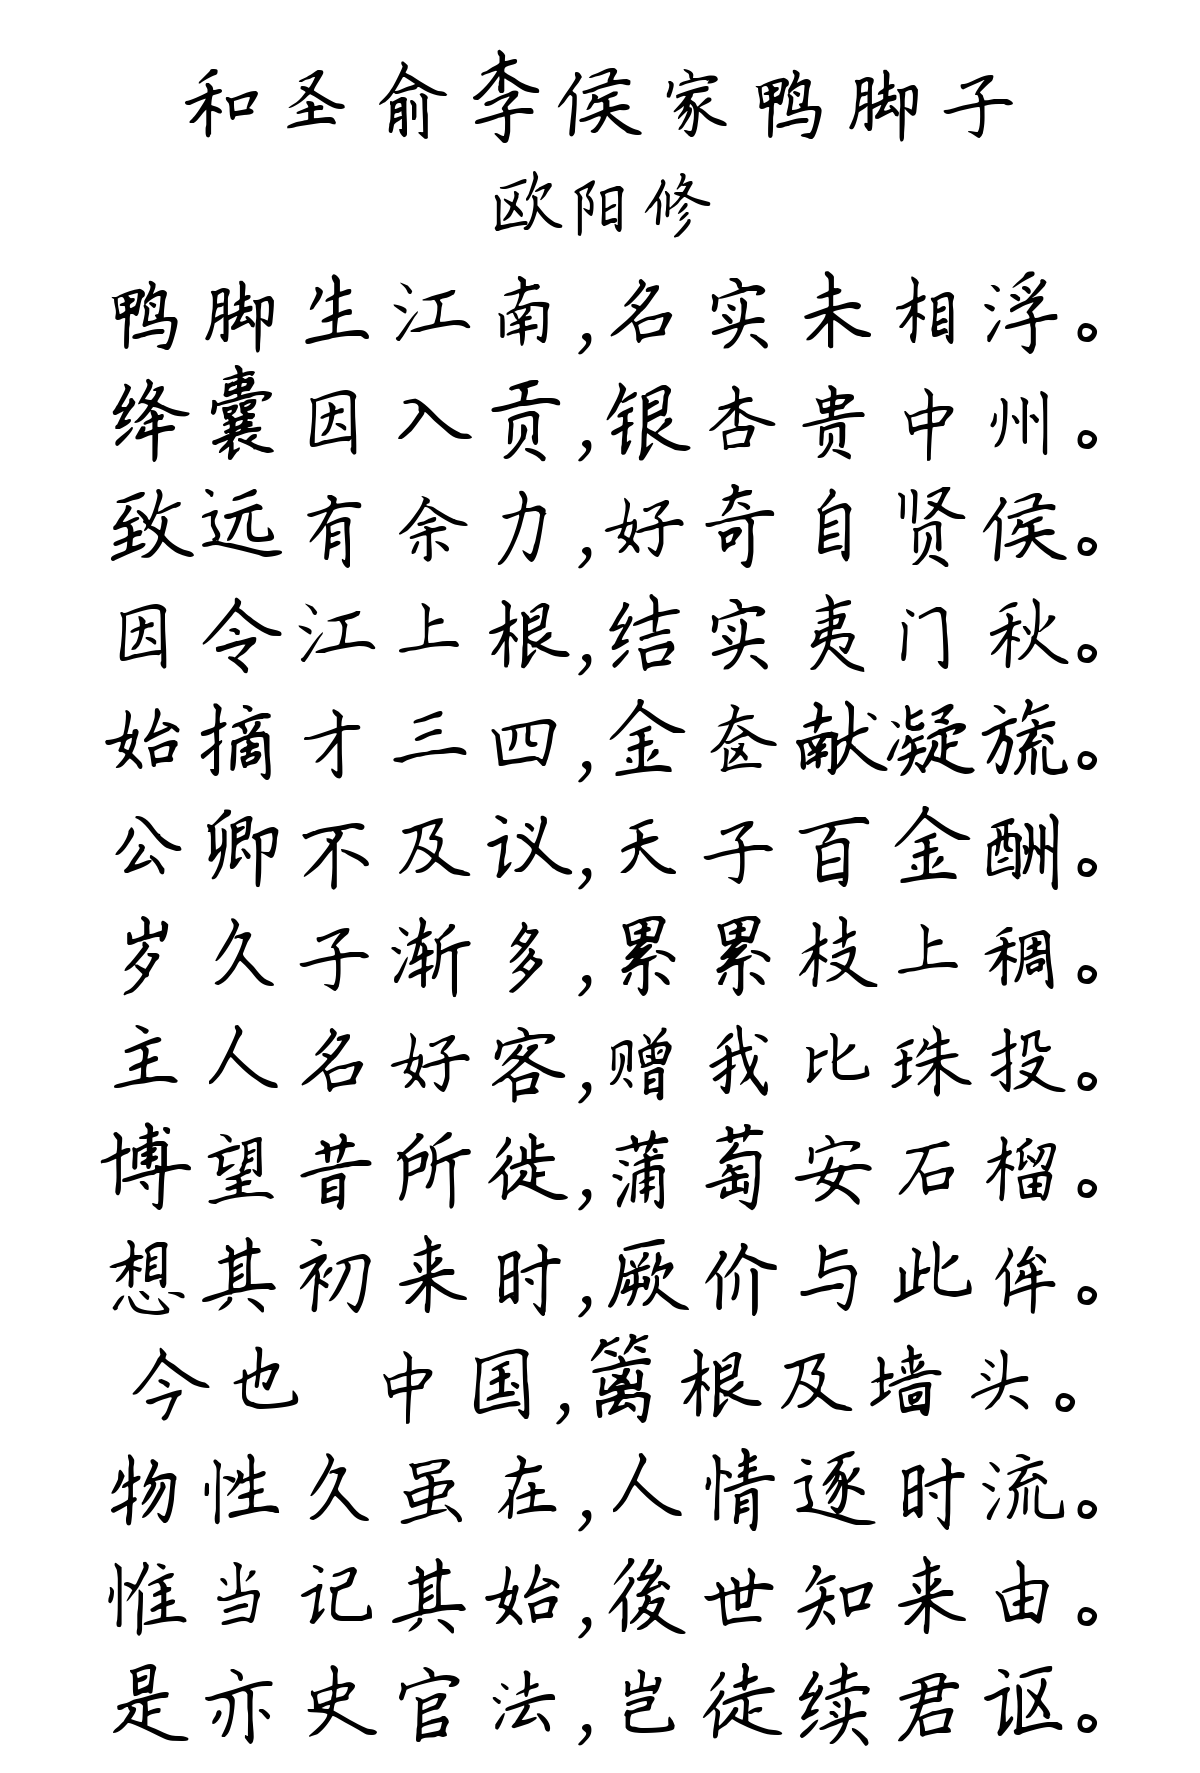 和圣俞李侯家鸭脚子
欧阳修
鸭脚生江南,名实未相浮。
绛囊因入贡,银杏贵中州。
致远有余力,好奇自贤侯。
因令江上根,结实夷门秋。
始摘才三四,金奁献凝旒。
公卿不及议,天子百金酬。
岁久子渐多,累累枝上稠。
主人名好客,赠我比珠投。
博望昔所徙,蒲萄安石榴。
想其初来时,厥价与此侔。
今也 中国,篱根及墙头。
物性久虽在,人情逐时流。
惟当记其始,後世知来由。
是亦史官法,岂徒续君讴。